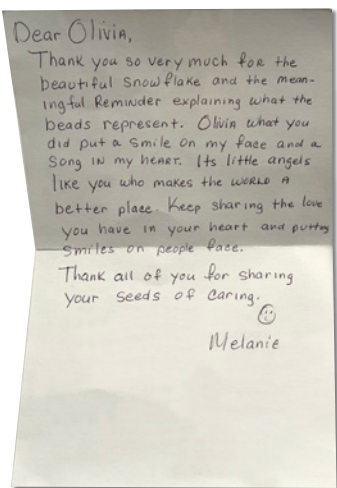 Dear Olivia,
Thank you so very much for the
beautiful snowflake and the mean-
ingful Reminder explaining what the
beads represent. Olivia what you
did put a smile on my face and a
song in my heart. Its little angels
like you who makes the world a
better place. Keep sharing the love
you have in your heart and putting
smiles on people face.
Thank all of you for sharing
your seeds of caring.
Melanie